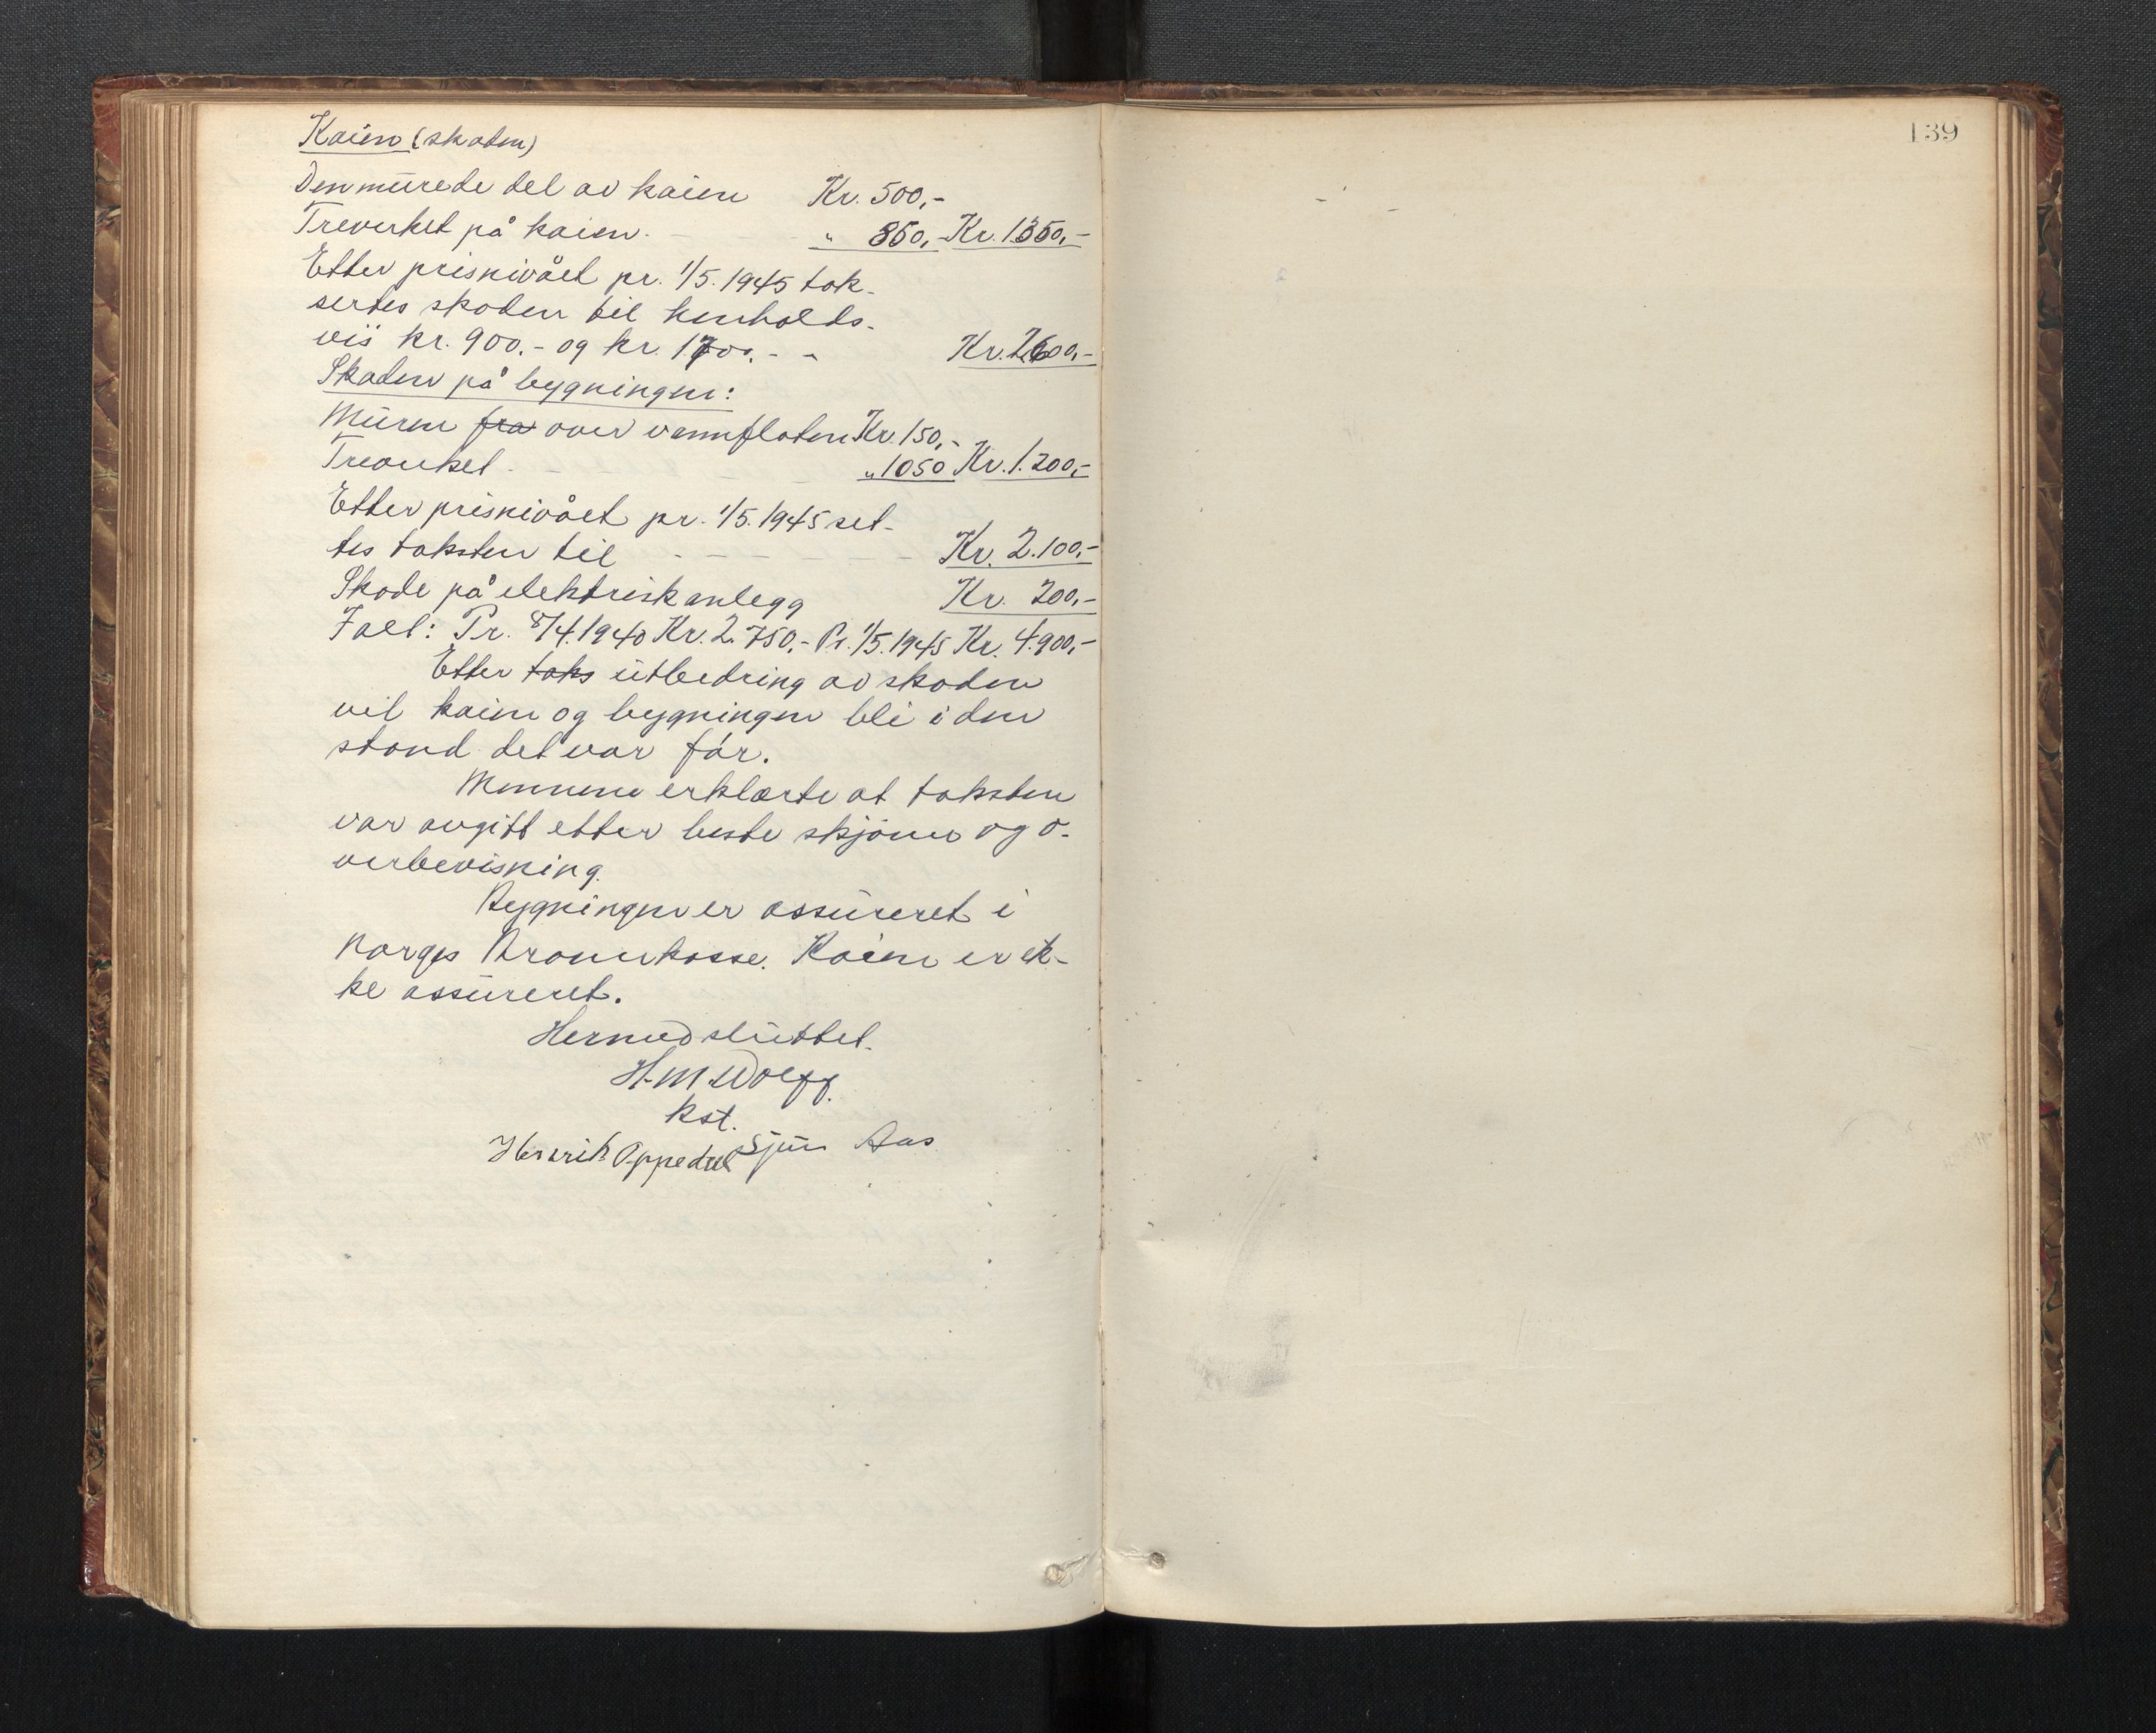 Kaien (skaden)
Den murede del av kaien Kr. 500,-
Treverket på kaien - " 850,- Kr. 1350,-
Etter prisnivået pr. 1/5. 1945 tak-
sertes skaden til henholds-
vis kr. 900.- og kr. 1700.- - Kr. 2600,-
Skaden på bygningen:
Muren fra over vannflaten Kr. 150,-
Treverket - " 1050 Kr. 1.200,-
Etter prisnivået pr. 1/5. 1945 set-
tes taksten til - - - - - Kr. 2.100,-
Skade på elektrisk anlegg Kr. 200,-
Ialt: Pr. 8/4.1940 Kr. 2.750,- Pr. 1/5.1945 Kr. 4.900,-
Etter taks utbedring av skaden
vil kaien og bygningen bli i den
stand det var før.
Mennene erklærte at taksten
var avgitt etter beste skjønn og o-
verbevisning.
Bygningen er assureret i
Norges Brannkasse. Kaien er ik-
ke assureret.
Hermed sluttet.
H. M. Wolff.
kst.
Henrik Oppedal Sjur Aas
139